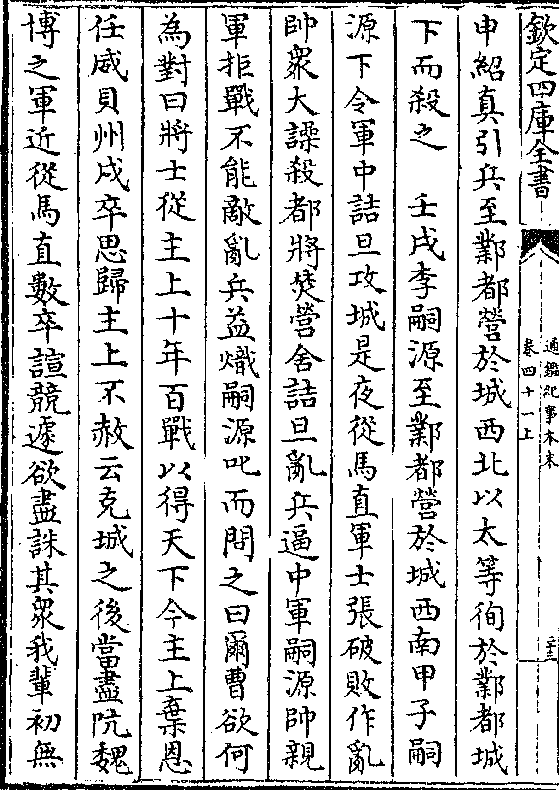 欽定四庫全書
通鑑紀事本末
卷四十一上
二十三
申紹真引兵至鄴都營於城西北以太等徇於鄴都城
下而殺之　壬戌李嗣源至鄴都營於城西南甲子嗣
源下令軍中詰旦攻城是夜從馬直軍士張破敗作亂
帥衆大譟殺都將焚營舍詰旦亂兵逼中軍嗣源帥親
軍拒戰不能敵亂兵益熾嗣源叱而問之曰爾曹欲何
為對曰將士從主上十年百戰以得天下今主上棄恩
任威貝州戍卒思歸主上不赦云克城之後當盡阬魏
博之軍近從馬直數卒諠競遽欲盡誅其衆我輩初無